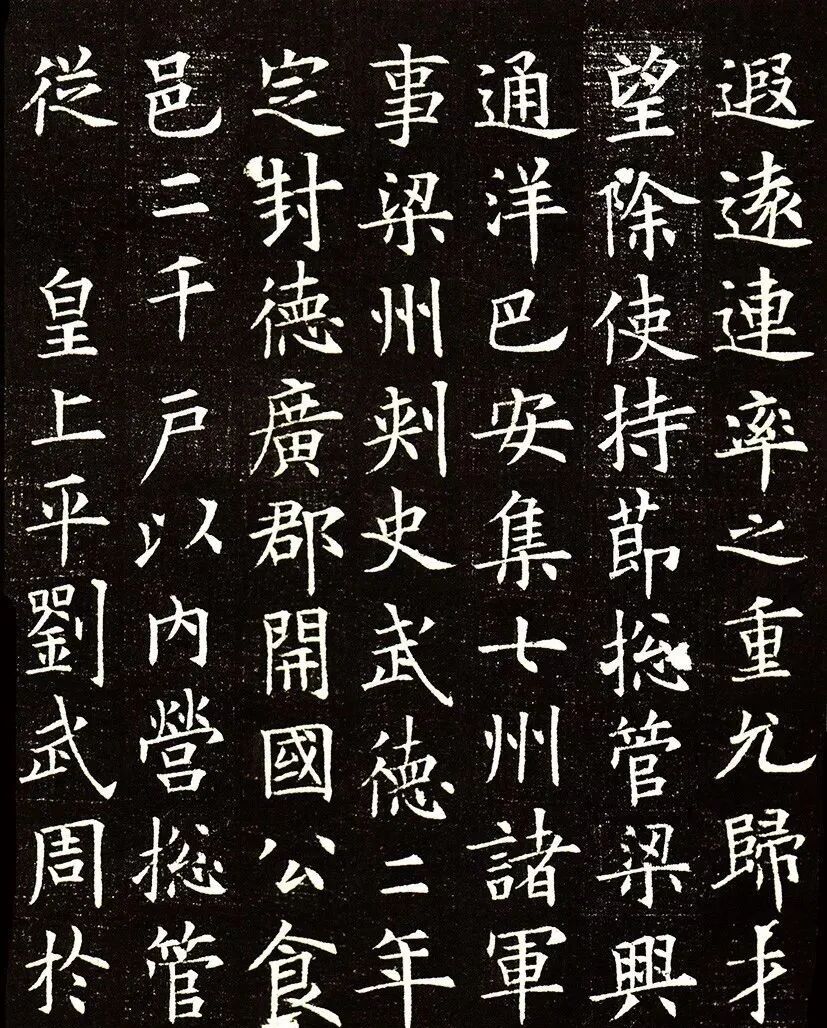 遐遠連率之重尤歸才
望除使持節捴管梁興
通洋巴安集七州諸軍
事梁州刾史武德二年
定封德廣郡開國公食
邑二千戶以內營捴管
從 皇上平劉武周於